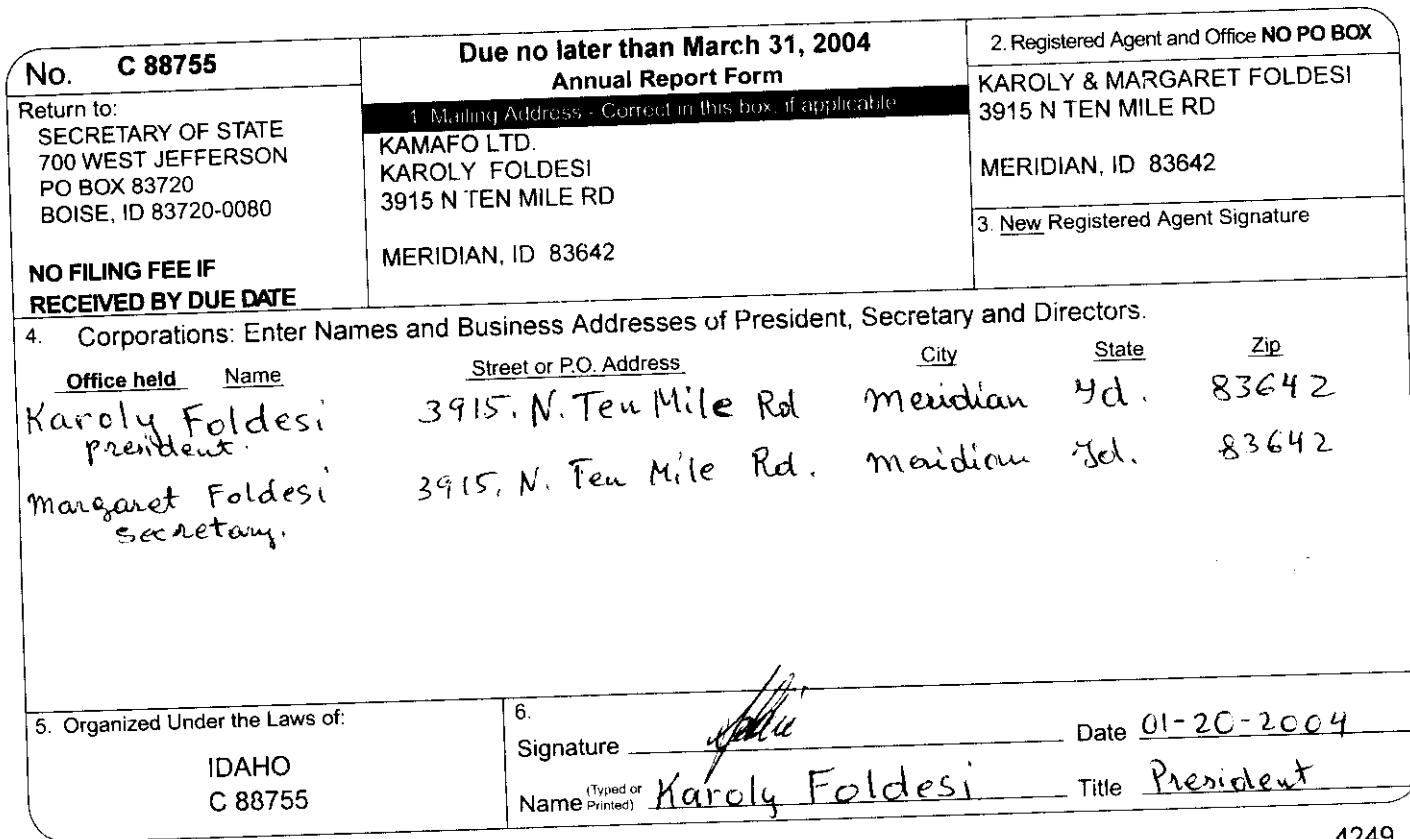 No. C 88755
Return to:
SECRETARY OF STATE
700 WEST JEFFERSON
PO BOX 83720
BOISE, ID 83720-0080
NO FILING FEE IF
RECEIVED BY DUE DATE
Due no later than March 31, 2004
Annual Report Form
1. Mailing Address - Correct in this box, if applicable
KAMAFO LTD.
KAROLY FOLDESI
3915 N TEN MILE RD
MERIDIAN, ID 83642
2. Registered Agent and Office NO PO BOX
KAROLY & MARGARET FOLDESI
3915 N TEN MILE RD
MERIDIAN, ID 83642
3. New Registered Agent Signature
4. Corporations: Enter Names and Business Addresses of President, Secretary and Directors.
Office held Name Street or P.O. Address City State Zip
Karoly Foldesi 3915. N. Ten Mile Rd Meridian Id. 83642
president.
Margaret Foldesi 3915, N. Ten Mile Rd. Meridian Id. 83642
secretary.
5. Organized Under the Laws of:
IDAHO
C 88755
6.
Signature Date 01-20-2004
Name (Typed or Printed) Karoly Foldesi Title President
4249